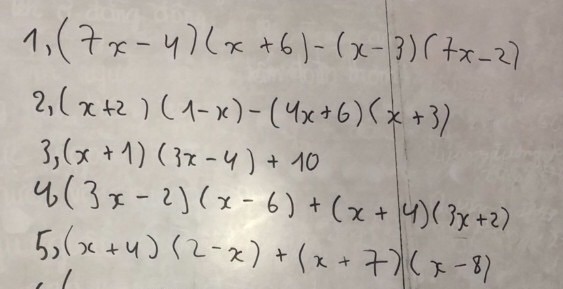 1,(7x-4)(x+6)-(x-3)(7x-2)
2,(x+2)(1-x)-(4x+6)(x+3)
3,(x+1)(3x-4)+10
4,(3x-2)(x-6)+(x+4)(3x+2)
5,(x+4)(2-x)+(x+7)(x-8)